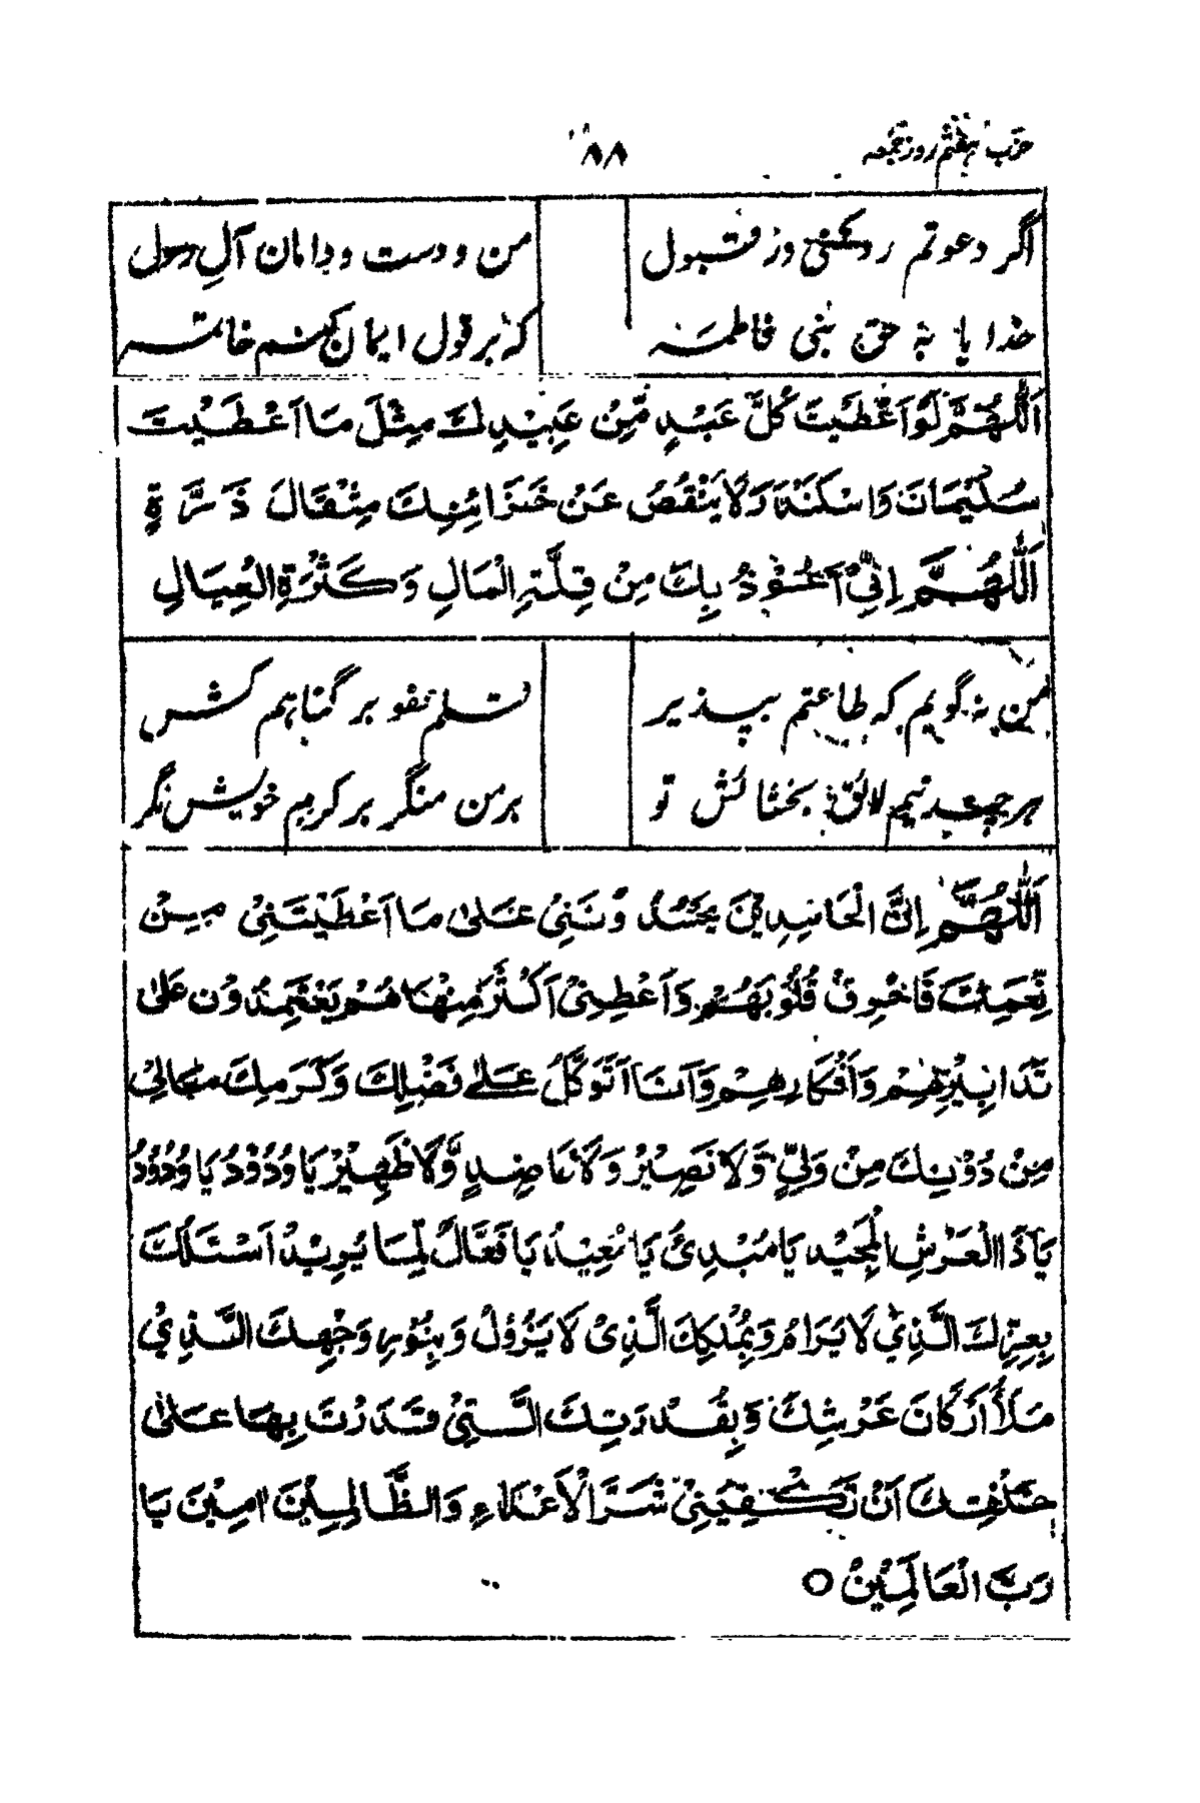 حزب ہفتم روز جمعہ
۸۸
اگر دعوتم رد کنی ور قبول من و دست و دامان آلِ رسول
خدایا بہ حق بنی فاطمہ کہ بر قول ایمان کنم خاتمہ
اَللّٰهُمَّ لَوْ اَعْطَيْتَ كُلَّ عَبْدٍ مِّنْ عَبِيْدِكَ مِثْلَ مَا اَعْطَيْتَ
سُلَيْمَانَ وَاسْكَنْتَهٗ وَلَا يَنْقُصُ عَنْ خَزَائِنِكَ مِثْقَالَ ذَرَّةٍ
اَللّٰهُمَّ اِنِّيْ اَعُوْذُ بِكَ مِنْ قِلَّةِ الْمَالِ وَكَثْرَةِ الْعِيَالِ
من نہ گویم کہ طاعتم بپذیر قلم عفو بر گناہم کش
ہرچہ نیم لائق بخشائش تو بر من منگر بر کرم خویش نگر
اَللّٰهُمَّ اِنَّ الْحَاسِدِيْنَ يَحْسُدُوْنَنِيْ عَلٰى مَا اَعْطَيْتَنِيْ مِنْ
نِّعَمِكَ فَاحْرِقْ قُلُوْبَهُمْ وَاَعْطِنِيْ اَكْثَرَ مِنْهَا هُمْ يَعْتَمِدُوْنَ عَلٰى
تَدَابِيْرِهِمْ وَاَفْكَارِهِمْ وَاَنَا اَتَوَكَّلُ عَلٰى فَضْلِكَ وَكَرَمِكَ مَالِيْ
مِنْ دُوْنِكَ مِنْ وَلِيٍّ وَّلَا نَصِيْرٍ وَلَا عَاضِدٍ وَّلَا ظَهِيْرٍ يَا وُدُوْدُ يَا وُدُوْدُ
يَا ذَا الْعَرْشِ الْمَجِيْدِ يَا مُبْدِئُ يَا مُعِيْدُ يَا فَعَّالٌ لِّمَا يُرِيْدُ اَسْئَلُكَ
بِعِزِّكَ الَّذِيْ لَا يُرَامُ وَبِمُلْكِكَ الَّذِيْ لَا يَزُوْلُ وَبِنُوْرِ وَجْهِكَ الَّذِيْ
مَلَأَ اَرْكَانَ عَرْشِكَ وَبِقُدْرَتِكَ الَّتِيْ قَدَرْتَ بِهَا عَلٰى
خَلْقِكَ اَنْ تَكْفِيَنِيْ شَرَّ الْاَعْدَاءِ وَالظَّالِمِيْنَ اٰمِيْنَ يَا
رَبَّ الْعَالَمِيْنَ ○